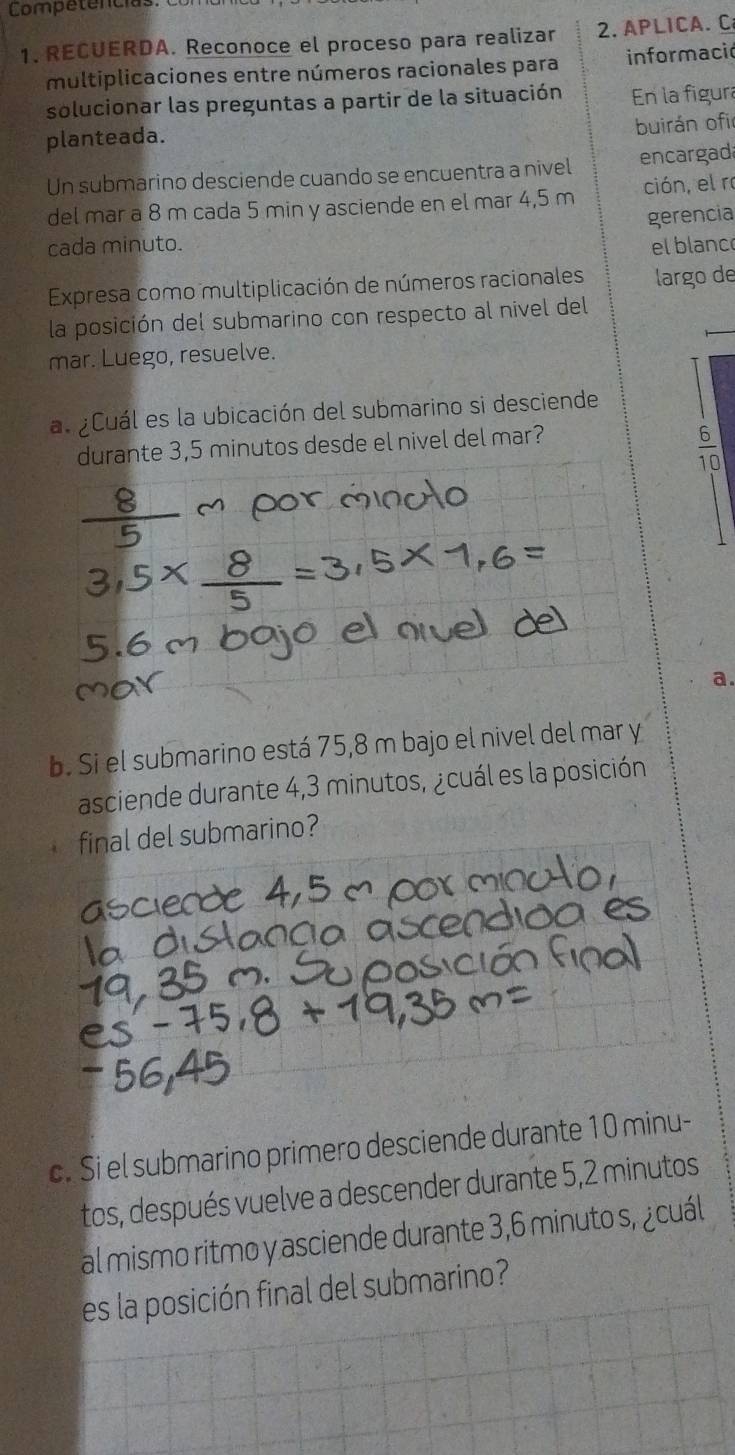 Competencias.
1. RECUERDA. Reconoce el proceso para realizar
multiplicaciones entre números racionales para
solucionar las preguntas a partir de la situación
planteada.
Un submarino desciende cuando se encuentra a nivel
del mar a 8 m cada 5 min y asciende en el mar 4,5 m
cada minuto.
Expresa como multiplicación de números racionales
la posición del submarino con respecto al nivel del
mar. Luego, resuelve.
a. ¿Cuál es la ubicación del submarino si desciende
durante 3,5 minutos desde el nivel del mar?
8/5 m por minuto
3,5 × 8/5 = 3,5 × 1,6 =
5.6 m bajo el nivel del
mar
b. Si el submarino está 75,8 m bajo el nivel del mar y
asciende durante 4,3 minutos, ¿cuál es la posición
final del submarino?
asciende 4,5 m por minuto,
la distancia ascendida es
19,35 m. Su posición final
es -75,8 + 19,35 m =
-56,45
c. Si el submarino primero desciende durante 10 minu-
tos, después vuelve a descender durante 5,2 minutos
al mismo ritmo y asciende durante 3,6 minuto s, ¿cuál
es la posición final del submarino?
2. APLICA. C
informació
En la figura
buirán ofi
encargad
ción, el r
gerencia
el blanc
largo de
6/10
a.